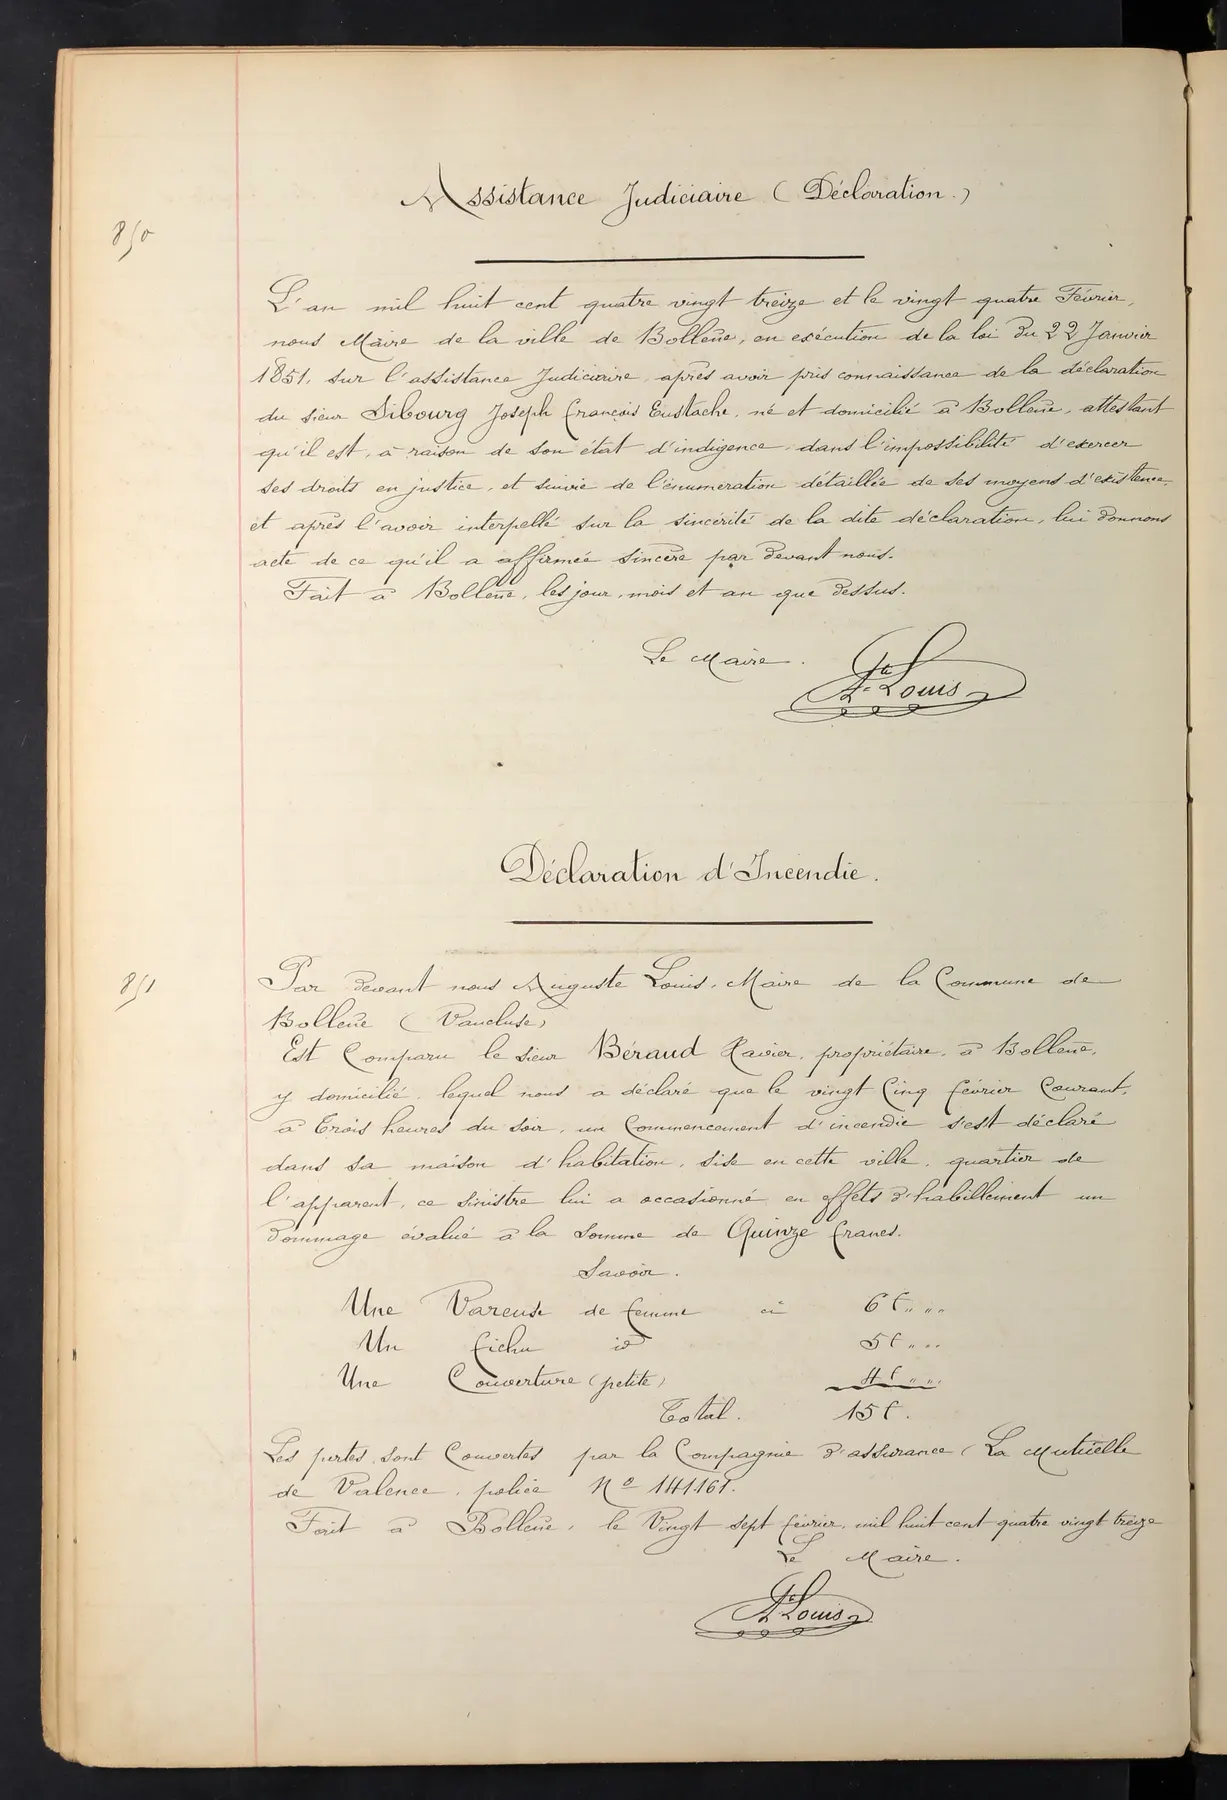 Assistance Judiciaire (Déclaration.)
850
L'an mil huit cent quatre vingt treize et le vingt quatre Février,
nous Maire de la ville de Bollène, en exécution de la loi du 22 Janvier
1851, sur l'assistance Judiciaire, après avoir pris connaissance de la déclaration
du sieur Sibourg Joseph François Eustache, né et domicilié à Bollène, attestant
qu'il est, à raison de son état d'indigence, dans l'impossibilité d'exercer
ses droits en justice, et suivie de l'énumération détaillée de ses moyens d'existence,
et après l'avoir interpellé sur la sincérité de la dite déclaration, lui donnons
acte de ce qu'il a affirmée sincère par devant nous.
Fait à Bollène, les jour, mois et an que dessus.
Le Maire.
Ate Louis
Déclaration d'Incendie.
851
Par devant nous Auguste Louis, Maire de la Commune de
Bollène (Vaucluse)
Est Comparu le sieur Béraud Xavier, propriétaire, à Bollène,
y domicilié, lequel nous a déclaré que le vingt Cinq février Courant,
à Trois heures du soir, un Commencement d'incendie s'est déclaré
dans sa maison d'habitation, sise en cette ville, quartier de
l'apparent, ce sinistre lui a occasionné en effets d'habillement un
dommage évalué à la somme de Quinze francs.
Savoir.
Une Vareuse de femme ci 6 f. " "
Un fichu id 5 f " "
Une Couverture (petite) 4 f " "
Total. 15 f.
Les pertes sont Couvertes par la Compagnie d'assurance, La Mutuelle
de Valence, police No 141.161.
Fait à Bollène, le Vingt sept février, mil huit cent quatre vingt treize
Le Maire.
Ate Louis